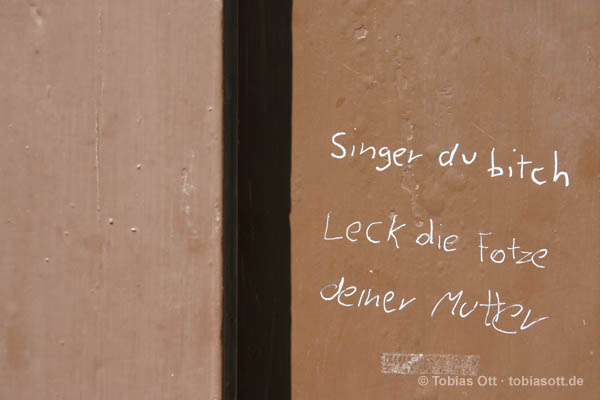 Singer du bitch
Leck die Fotze
deiner Mutter
© Tobias Ott · tobiasott.de